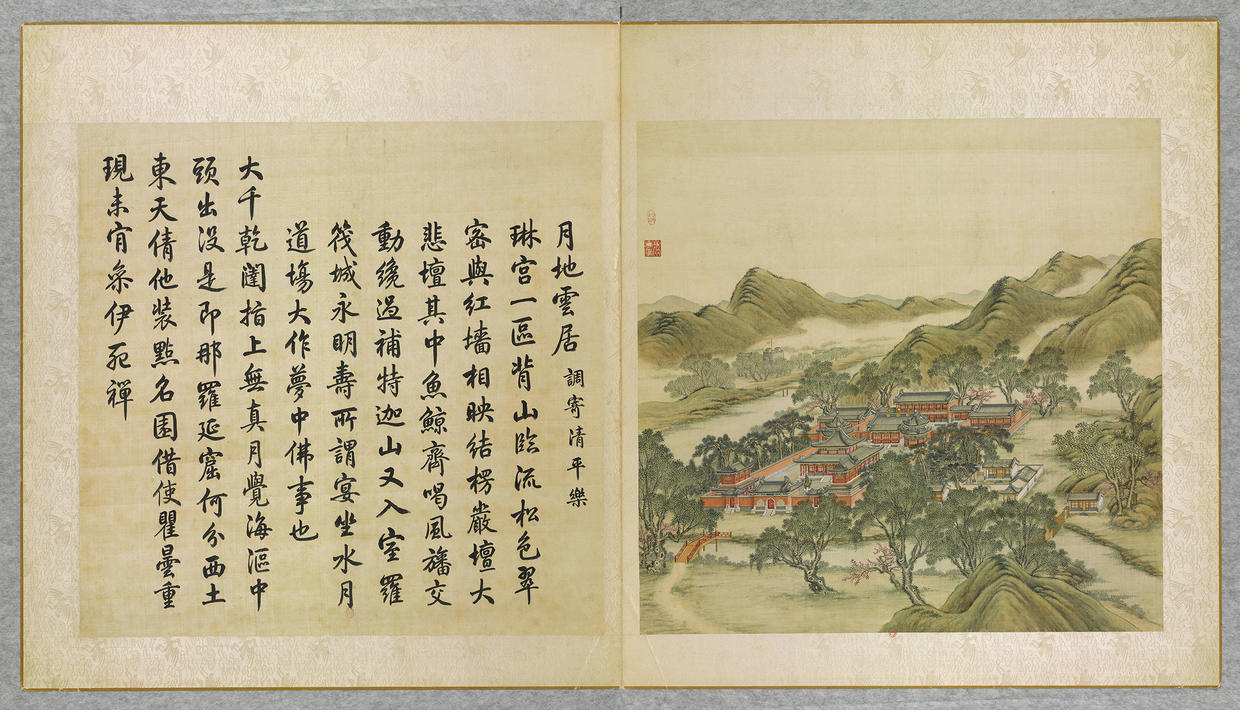 月地雲居 調寄清平樂
琳宮一區背山臨流松色翠
密與紅墻相映結楞嚴壇大
悲壇其中魚鯨齊喝風旛交
動纔過補特迦山又入室羅
筏城永明壽所謂宴坐水月
道場大作夢中佛事也
大千乾闥指上無真月覺海漚中
頭出沒是即那羅延窟何分西土
東天倩他裝點名園借使瞿曇重
現未肯參伊死禪